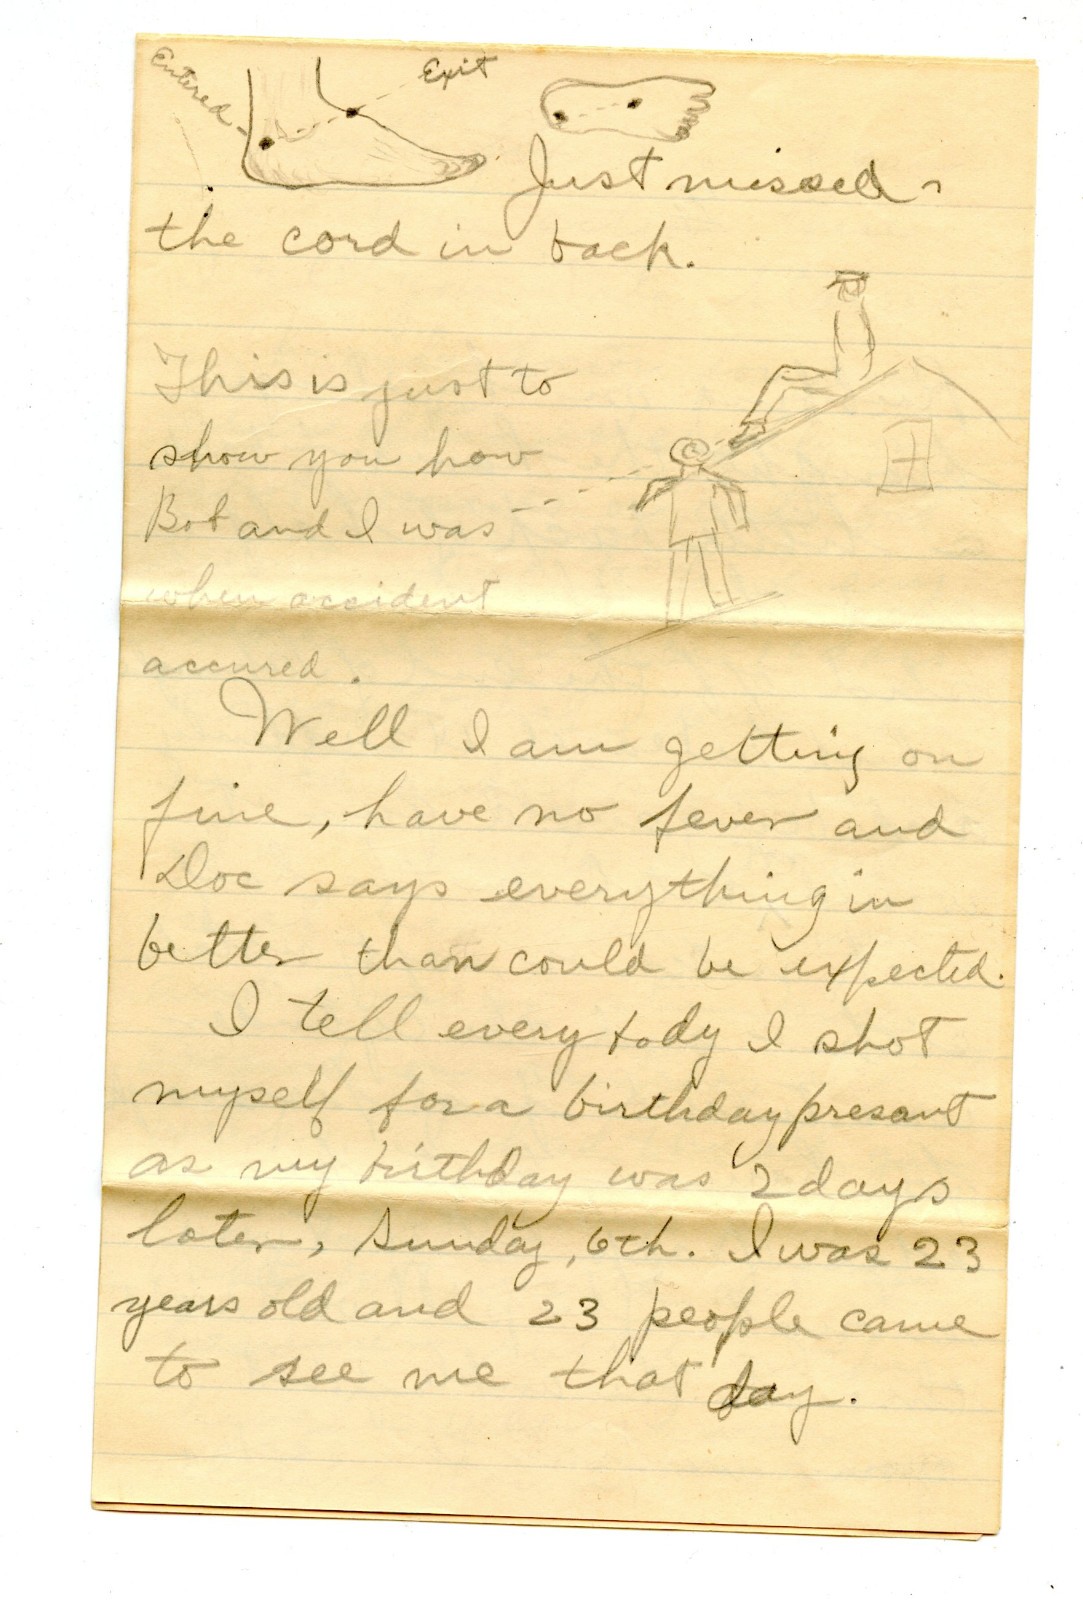 Entered
Exit
Just missed
the cord in back.
This is just to
show you how
Bob and I was
when accident
accured.
Well I am getting on
fine, have no fever and
Doc says everything in
better than could be expected.
I tell everybody I shot
myself for a birthday presant
as my birthday was 2 days
later, Sunday, 6th. I was 23
years old and 23 people came
to see me that day.